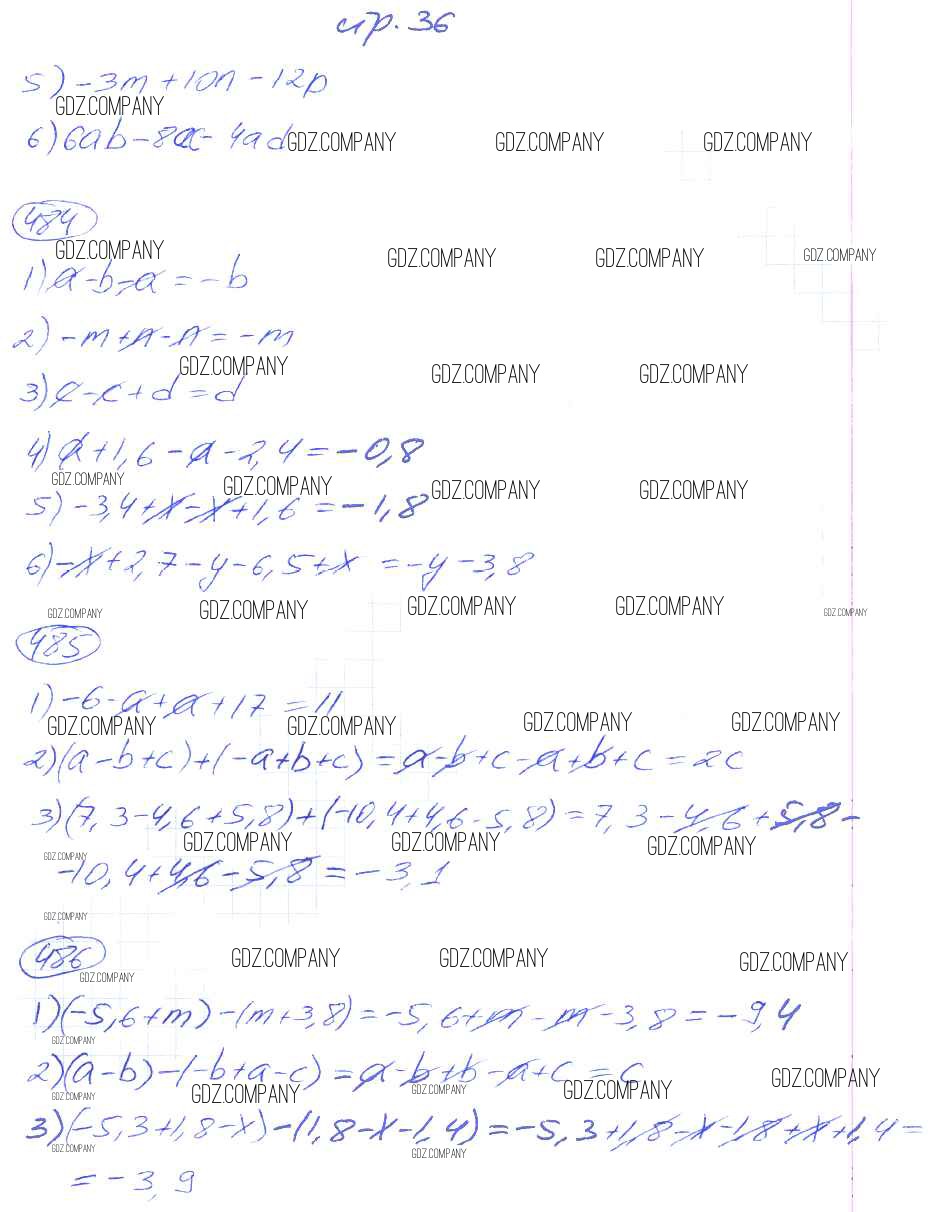 стр. 36
5) -3m + 10n - 12p
GDZ.COMPANY
6) 6ab - 8ac - 4ad GDZ.COMPANY GDZ.COMPANY GDZ.COMPANY
484
GDZ.COMPANY GDZ.COMPANY GDZ.COMPANY GDZ.COMPANY
1) a - b - a = -b
2) -m + n - n = -m
GDZ.COMPANY GDZ.COMPANY GDZ.COMPANY
3) c - c + d = d
4) a + 1,6 - a - 2,4 = -0,8
GDZ.COMPANY GDZ.COMPANY GDZ.COMPANY GDZ.COMPANY
5) -3,4 + x - x + 1,6 = -1,8
6) -x + 2,7 - y - 6,5 + x = -y - 3,8
GDZ.COMPANY GDZ.COMPANY GDZ.COMPANY GDZ.COMPANY GDZ.COMPANY
485
1) -6 - a + a + 17 = 11
GDZ.COMPANY GDZ.COMPANY GDZ.COMPANY GDZ.COMPANY
2) (a - b + c) + (-a + b + c) = a - b + c - a + b + c = 2c
3) (7,3 - 4,6 + 5,8) + (-10,4 + 4,6 - 5,8) = 7,3 - 4,6 + 5,8 -
GDZ.COMPANY GDZ.COMPANY GDZ.COMPANY GDZ.COMPANY
-10,4 + 4,6 - 5,8 = -3,1
GDZ.COMPANY
486
GDZ.COMPANY GDZ.COMPANY GDZ.COMPANY
GDZ.COMPANY
1) (-5,6 + m) - (m + 3,8) = -5,6 + m - m - 3,8 = -9,4
GDZ.COMPANY
2) (a - b) - (-b + a - c) = a - b + b - a + c = c
GDZ.COMPANY GDZ.COMPANY GDZ.COMPANY GDZ.COMPANY GDZ.COMPANY
3) (-5,3 + 1,8 - x) - (1,8 - x - 1,4) = -5,3 + 1,8 - x - 1,8 + x + 1,4 =
GDZ.COMPANY GDZ.COMPANY
= -3,9